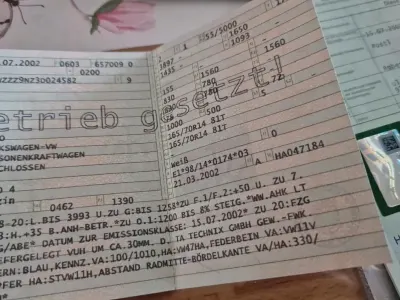 1 53/5000
.07.2002 0603 657009 0
1897 - 1650
0200 1435 - 1093
ZZZ9NZ3D024582 9
155 1560 1560
830 780 -
830 780 72
1000 500 5
165/70R14 81T
165/70R14 81T
etrieb gesetzt!
KSWAGEN-VW
SONENKRAFTWAGEN
CHLOSSEN
weiß 0
E1*98/14*0174*03
21.03.2002 A HA047184
0462 1390
B-20:L.BIS 3993 U.ZU G:BIS 1258*ZU F.1/F.2:+50 U. ZU 7.
3:H.+35 B.ANH-BETR.*ZU O.1:1200 BIS 8% STEIG.*WW.AHK LT
G/ABE* DATUM ZUR EMISSIONSKLASSE: 15.07.2002* ZU 20:FZG
EFERGELEGT VUH UM CA.30MM. D. TA TECHNIX GMBH GEW.-FWK.
ERN:BLAU,KENNZ.VA:100/1010,HA:VW47HA,FEDERBEIN VA:VW11V
FER HA:STVW11H,ABSTAND RADMITTE-BÖRDELKANTE VA/HA:330/